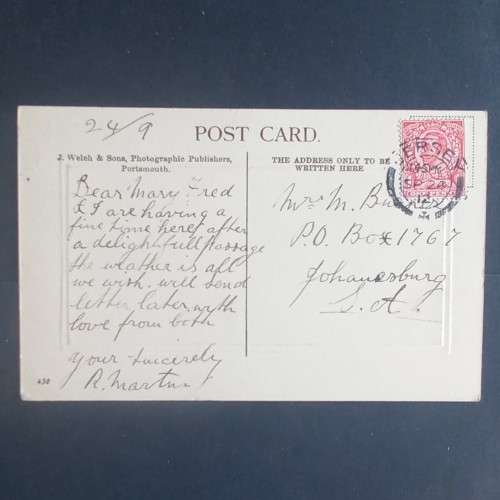 24/9
POST CARD.
J. Welch & Sons, Photographic Publishers,
Portsmouth.
THE ADDRESS ONLY TO BE
WRITTEN HERE
Dear Mary Fred
& I are having a
fine time here, after
a delightfull passage
the weather is all
we wish. will send
letter later, with
love from both
your sincerely
R. Martin
Mrs M.
P.O. Box 1767
Johanesburg
S.A.
JERSEY
SP 24
430